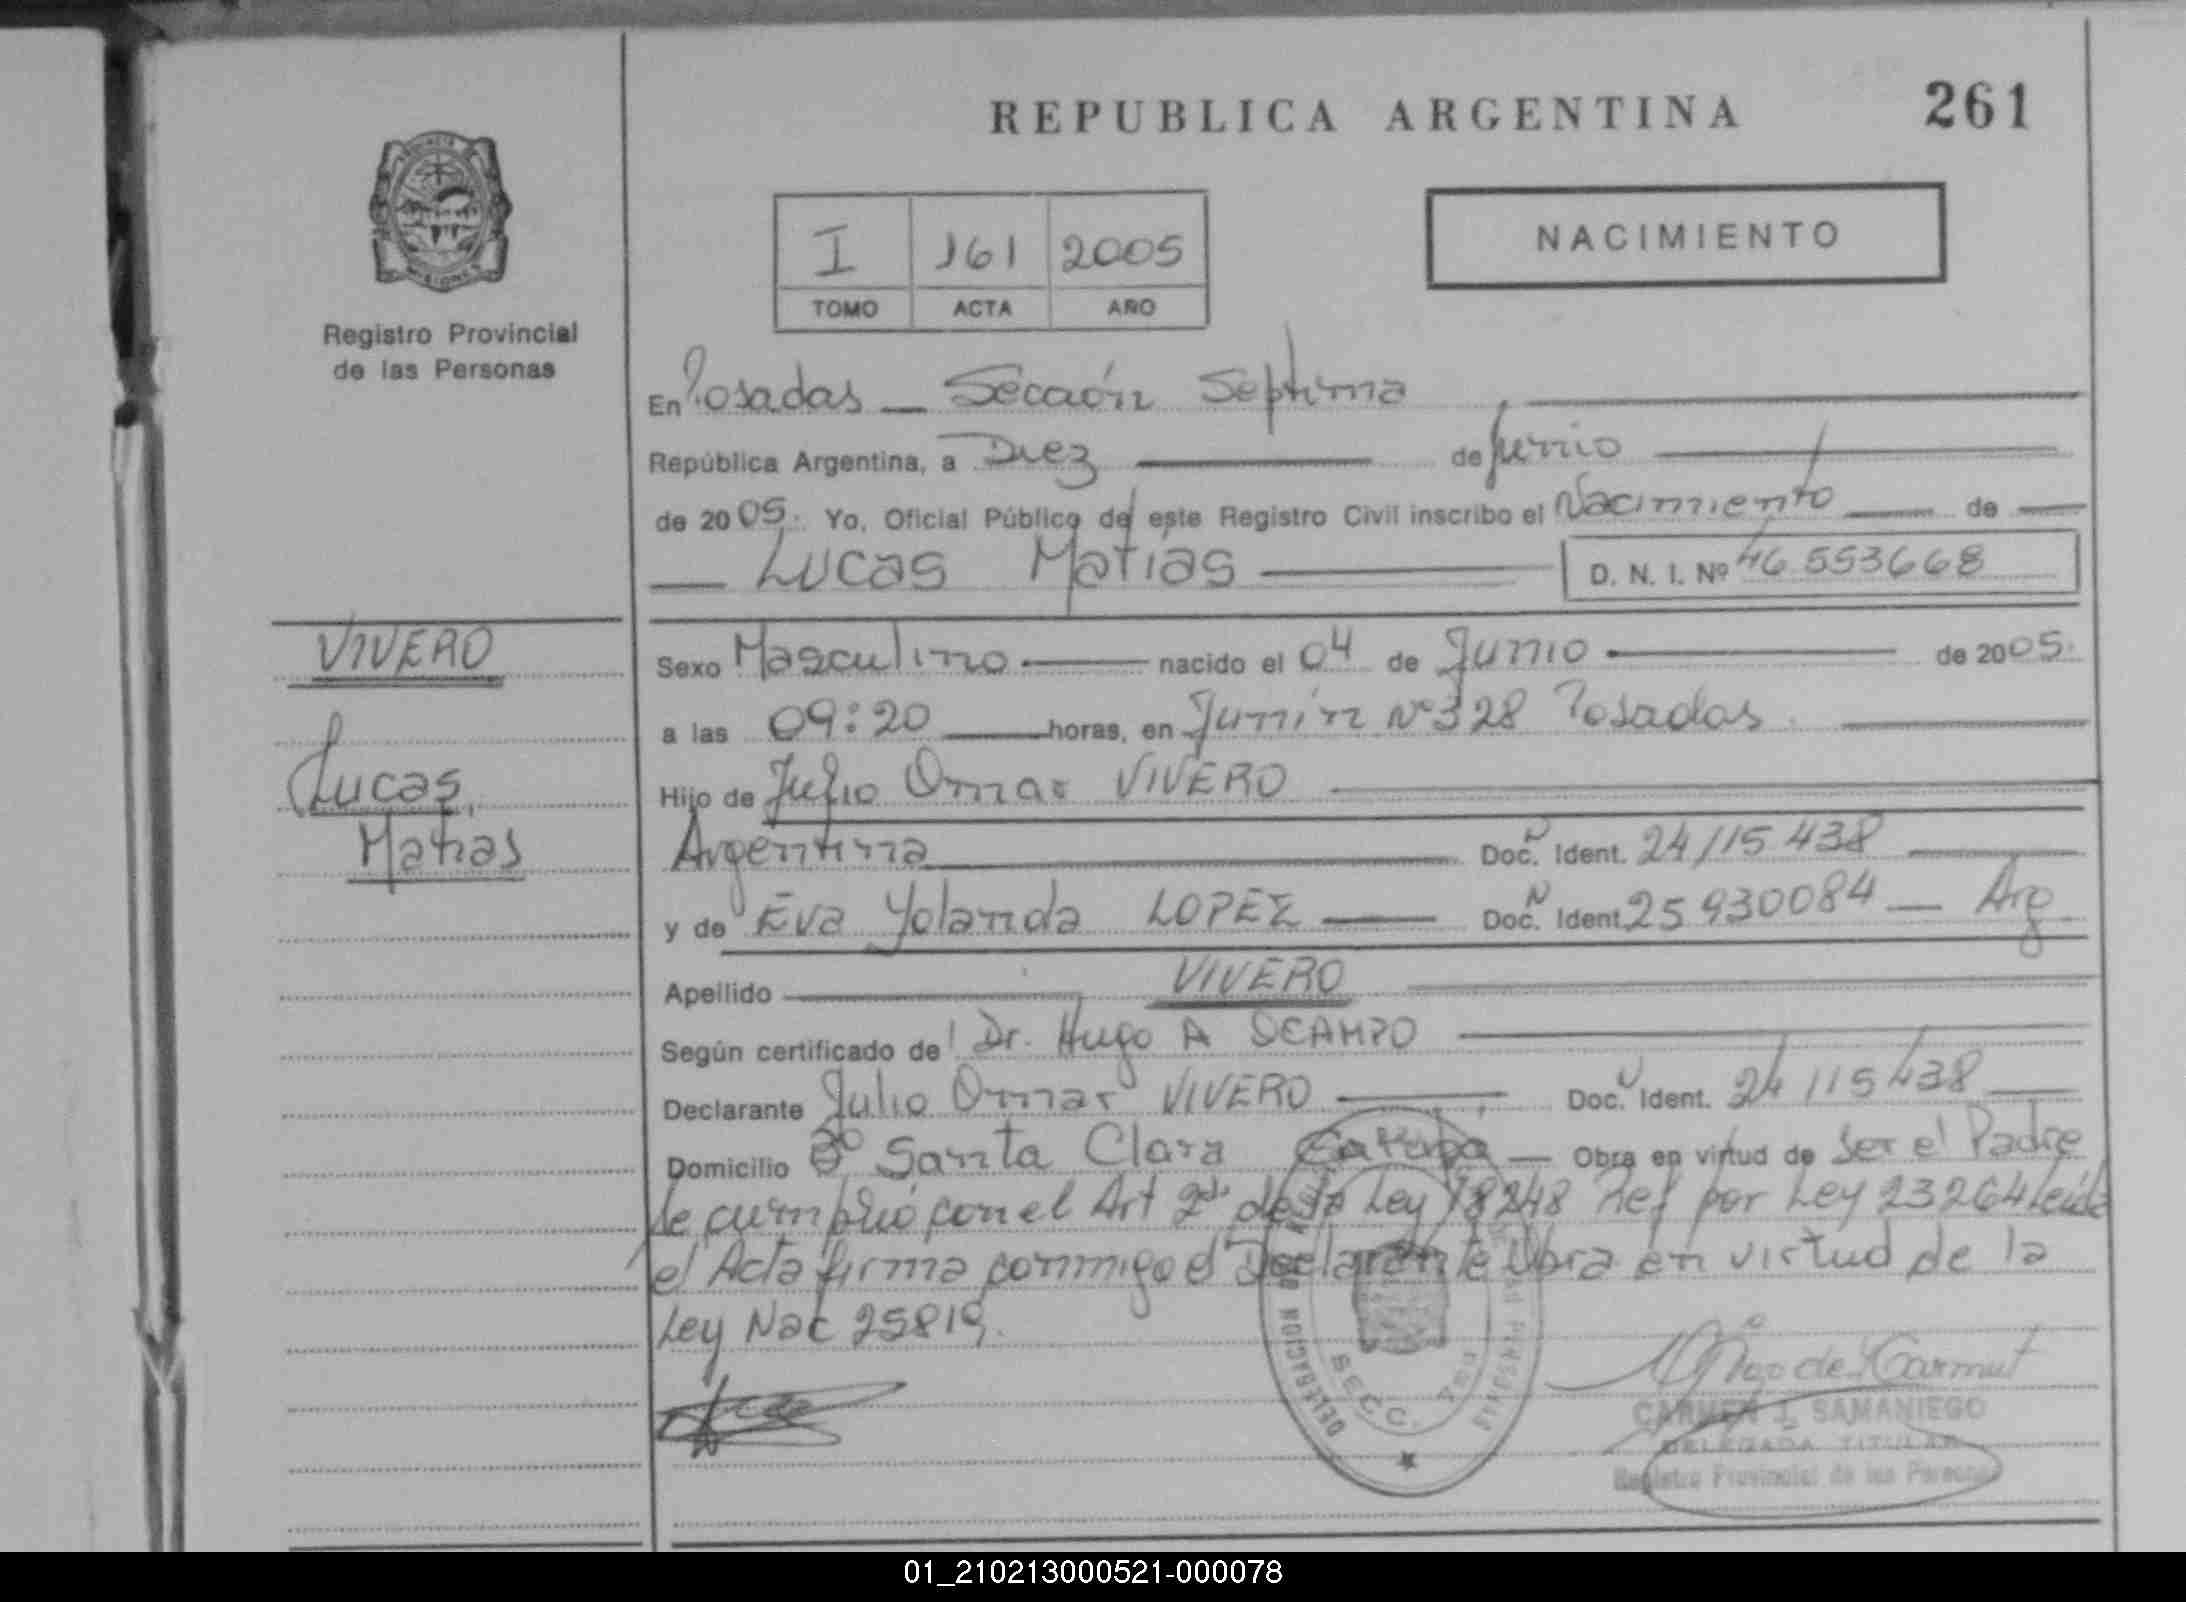 REPUBLICA ARGENTINA
261
PROVINCIA DE MISIONES
Registro Provincial
de las Personas
I 161 2005
TOMO ACTA AÑO
NACIMIENTO
En Posadas — Sección Septima
República Argentina, a Diez de Junio
de 2005. Yo, Oficial Público de este Registro Civil inscribo el Nacimiento de
Lucas Matías D. N. I. Nº 46 553668
VIVERO
Lucas
Matías
Sexo Masculino nacido el 04 de Junio de 2005.
a las 09:20 horas, en Junín Nº 328 Posadas.
Hijo de Julio Omar VIVERO
Argentina Doc. Ident. 24115438
y de Eva Yolanda LOPEZ Doc. Ident. 25930084 — Arg
Apellido VIVERO
Según certificado de Dr. Hugo A OCAMPO
Declarante Julio Omar VIVERO Doc. Ident. 24115438
Domicilio Bº Santa Clara Garupá — Obra en virtud de Ser el Padre
Se cumplió con el Art 2do de la Ley 18248 Ref por Ley 23264 Leída
el Acta firma conmigo el Declarante Obra en virtud de la
Ley Nac 25819.
DELEGACION
SECC. 7ma
CARMEN I. SAMANIEGO
DELEGADA TITULAR
Registro Provincial de las Personas
01_210213000521-000078